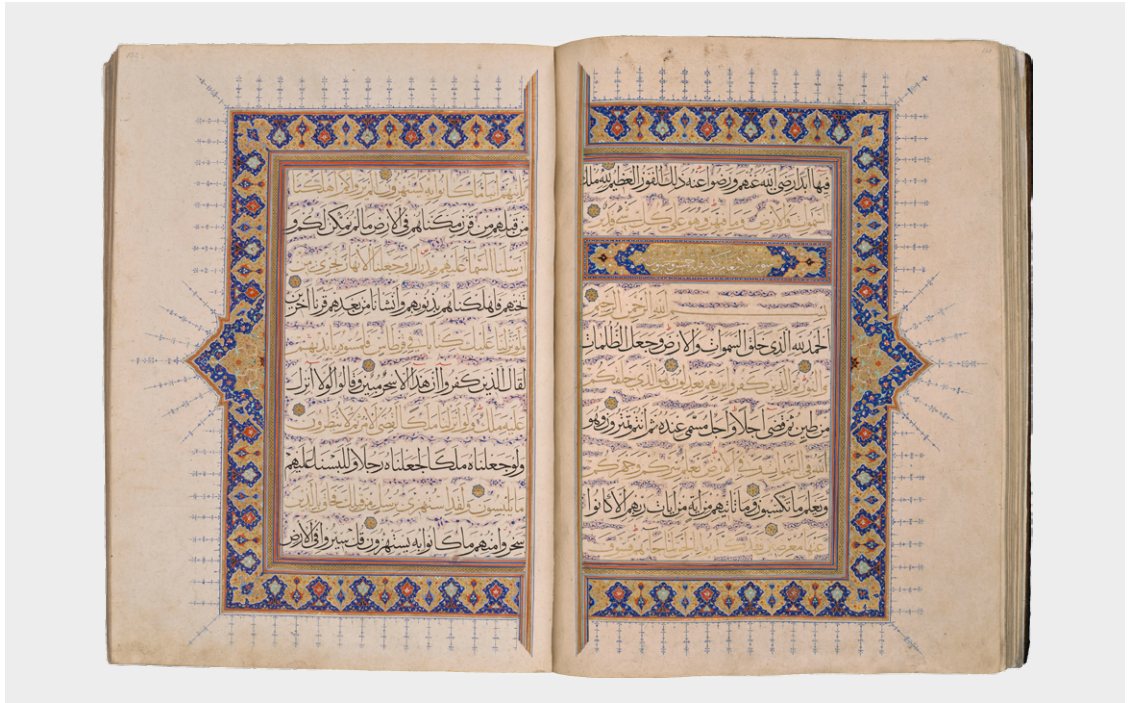 فيها ابدا رضي الله عنهم ورضوا عنه ذلك الفوز العظيم لله ملك
السموات والارض وما فيهن وهو على كل شيء قدير
بسم الله الرحمن الرحيم
الحمد لله الذي خلق السموات والارض وجعل الظلمات
والنور ثم الذين كفروا بربهم يعدلون هو الذي خلقكم
من طين ثم قضى اجلا واجل مسمى عنده ثم انتم تمترون وهو
الله في السموات وفي الارض يعلم سركم وجهركم
ويعلم ما تكسبون وما تاتيهم من اية من ايات ربهم الا كانوا
عنها معرضين فقد كذبوا بالحق لما جاءهم فسوف
ياتيهم انباء ما كانوا به يستهزؤن الم يروا كم اهلكنا
من قبلهم من قرن مكناهم في الارض ما لم نمكن لكم و
ارسلنا السماء عليهم مدرارا وجعلنا الانهار تجري من
تحتهم فاهلكناهم بذنوبهم وانشانا من بعدهم قرنا اخرين
ولو نزلنا عليك كتابا في قرطاس فلمسوه بايديهم
لقال الذين كفروا ان هذا الا سحر مبين وقالوا لولا انزل
عليه ملك ولو انزلنا ملكا لقضي الامر ثم لا ينظرون
ولو جعلناه ملكا لجعلناه رجلا وللبسنا عليهم
ما يلبسون ولقد استهزئ برسل من قبلك فحاق بالذين
سخروا منهم ما كانوا به يستهزؤن قل سيروا في الارض